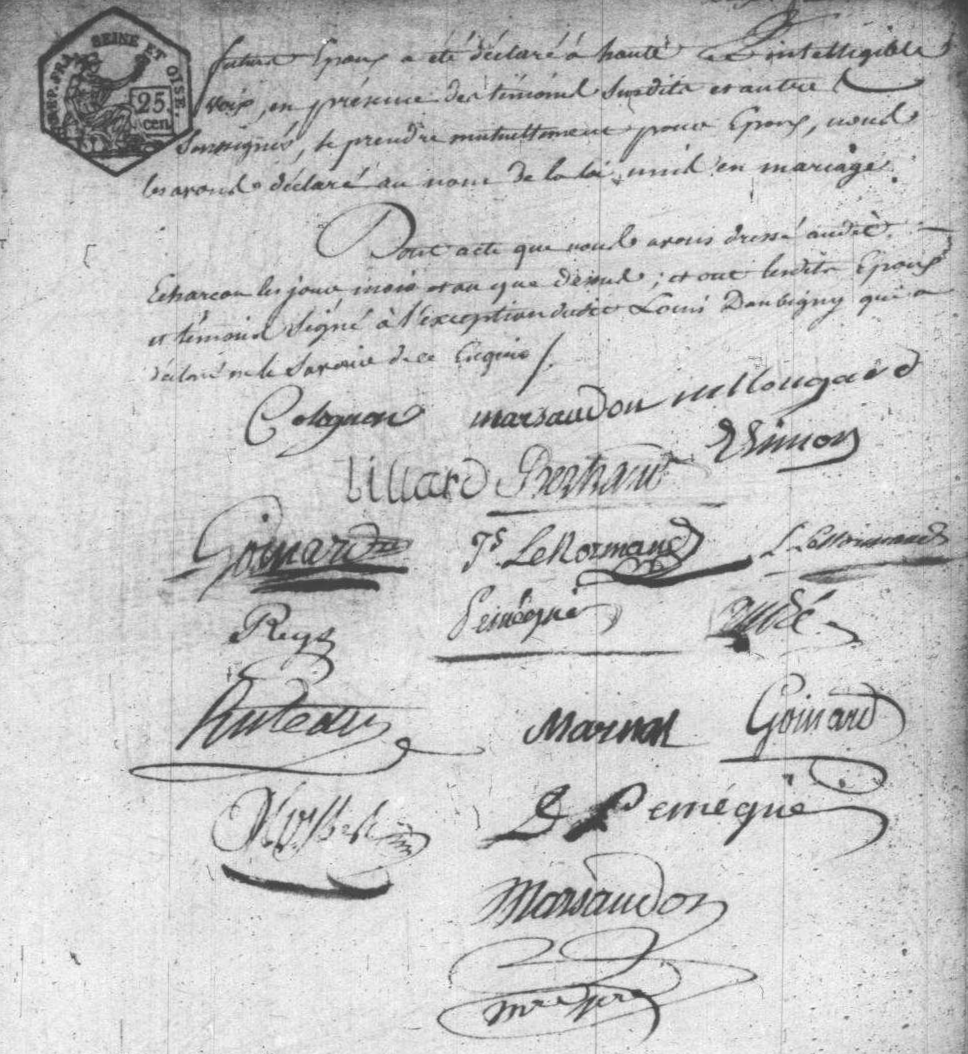 SEINE ET OISE.
25.
cen
futurs Epoux a été déclaré à haute et intelligible
voix, en présence des témoins susdits et autres
soussignés, se prendre mutuellement pour Epoux, nous
les avons déclaré au nom de la loi, unis en mariage.
Dont acte que nous avons dressé audit
Echarcon les jour mois et an que dessus ; et ont lesdits Epoux
et témoins signé à l'exception dudit Louis Daubigny qui a
déclaré ne le savoir de ce Enquis /.
marsaudon
Simon
Lillard Bertrand
Goinard Js LeNormand L. LeNormand
Rege Pemegué
Marnat Goinard
Pemégué
Marsaudon
mre